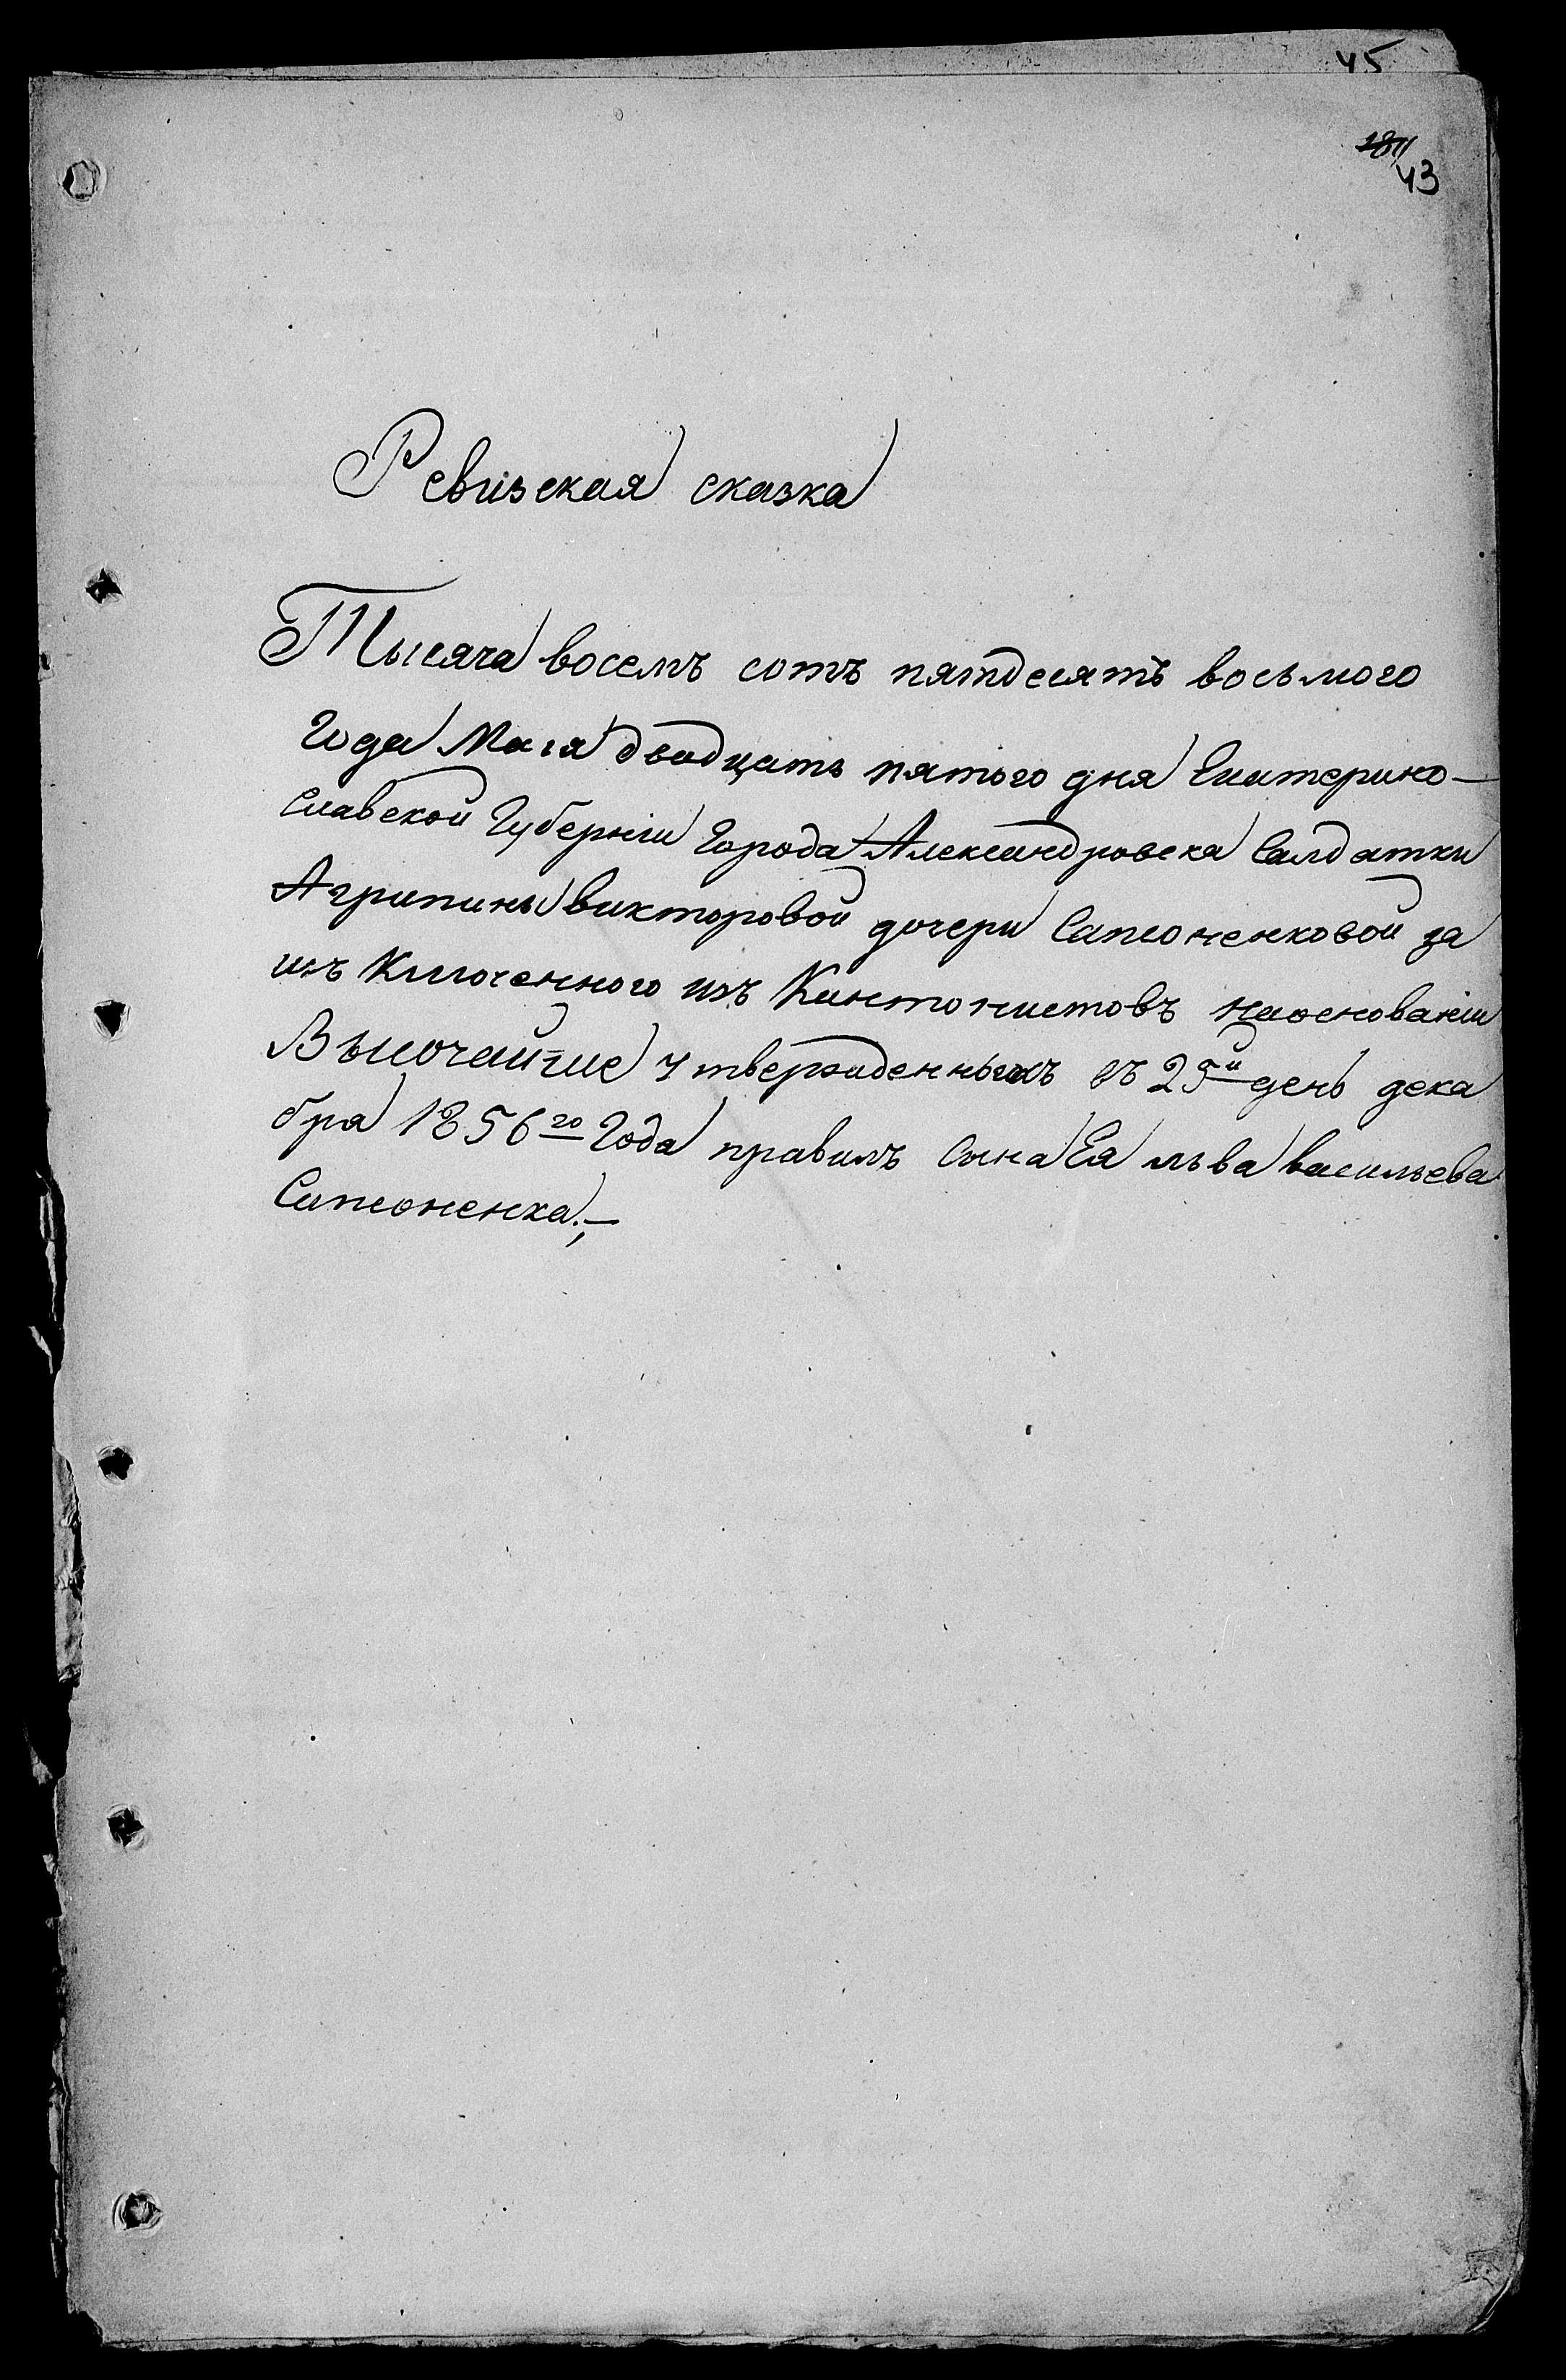 45
43
Ревизская сказка
Тысяча восемъ сотъ пятдесятъ восьмого
Года Маія двадцать пятого дня Екатерино-
славской Губерніи Города Александровска Салдатки
Агрипины викторовой дочери Сапоненковой за
изъ Ключенного изъ Кантонистовъ наоснованіи
Высочайше утвержденныхъ въ 25й день дека
бря 1856го Года правилъ Сына Ея льва васильева
Сапоненка.;—